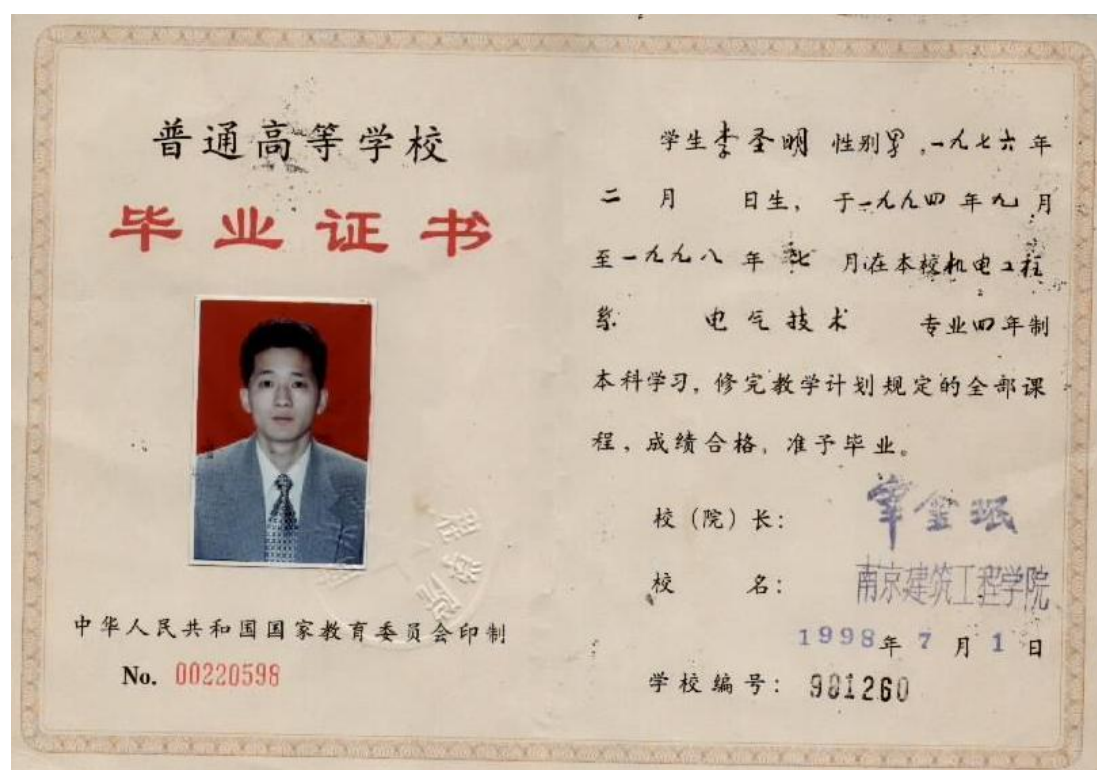 普通高等学校
毕业证书
中华人民共和国国家教育委员会印制
No. 00220598
学生李圣明 性别男,一九七六年
二 月 日生, 于一九九四年九月
至一九九八年七月在本校机电工程
系 电气技术 专业四年制
本科学习, 修完教学计划规定的全部课
程, 成绩合格, 准予毕业。
校(院)长:
校 名: 南京建筑工程学院
1998年 7 月 1 日
学校编号: 981260
程学院